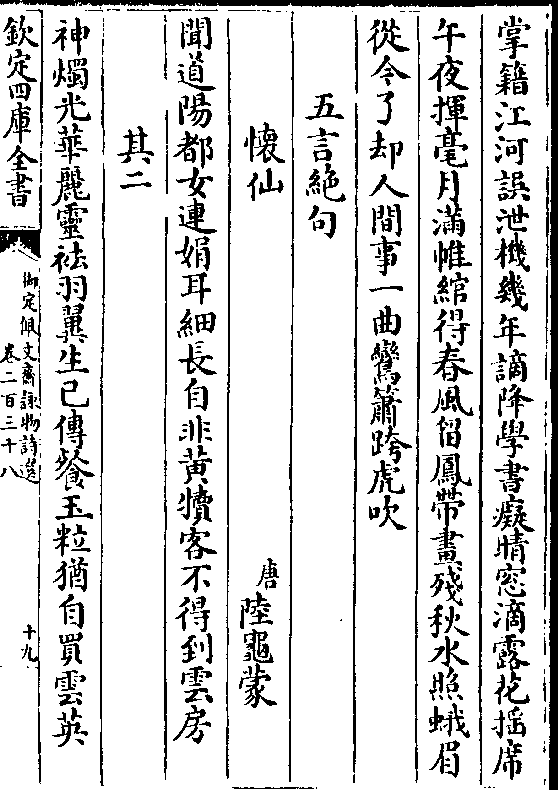 掌籍江河誤泄機幾年謫降學書癡晴窓滴露花揺席
午夜揮毫月滿帷綰得春風留鳳帶畫殘秋水照蛾眉
從今了却人間事一曲鸞簫跨虎吹
五言絶句
懐仙
唐
陸龜蒙
聞道陽都女連娟耳細長自非黃犢客不得到雲房
其二
神燭光華麗靈袪羽翼生已傳餐玉粒猶自買雲英
欽定四庫全書
御定佩文齋詠物詩選
卷二百三十八
十九